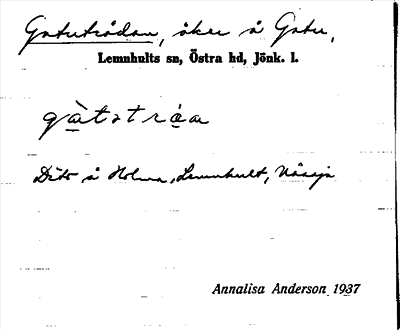 Gatuträdan, åker å Gatu,
Lemnhults sn, Östra hd, Jönk. l.
gàtatrá̤a
Dito å Holma, Lemnhult, Nässja
Annalisa Anderson 1937